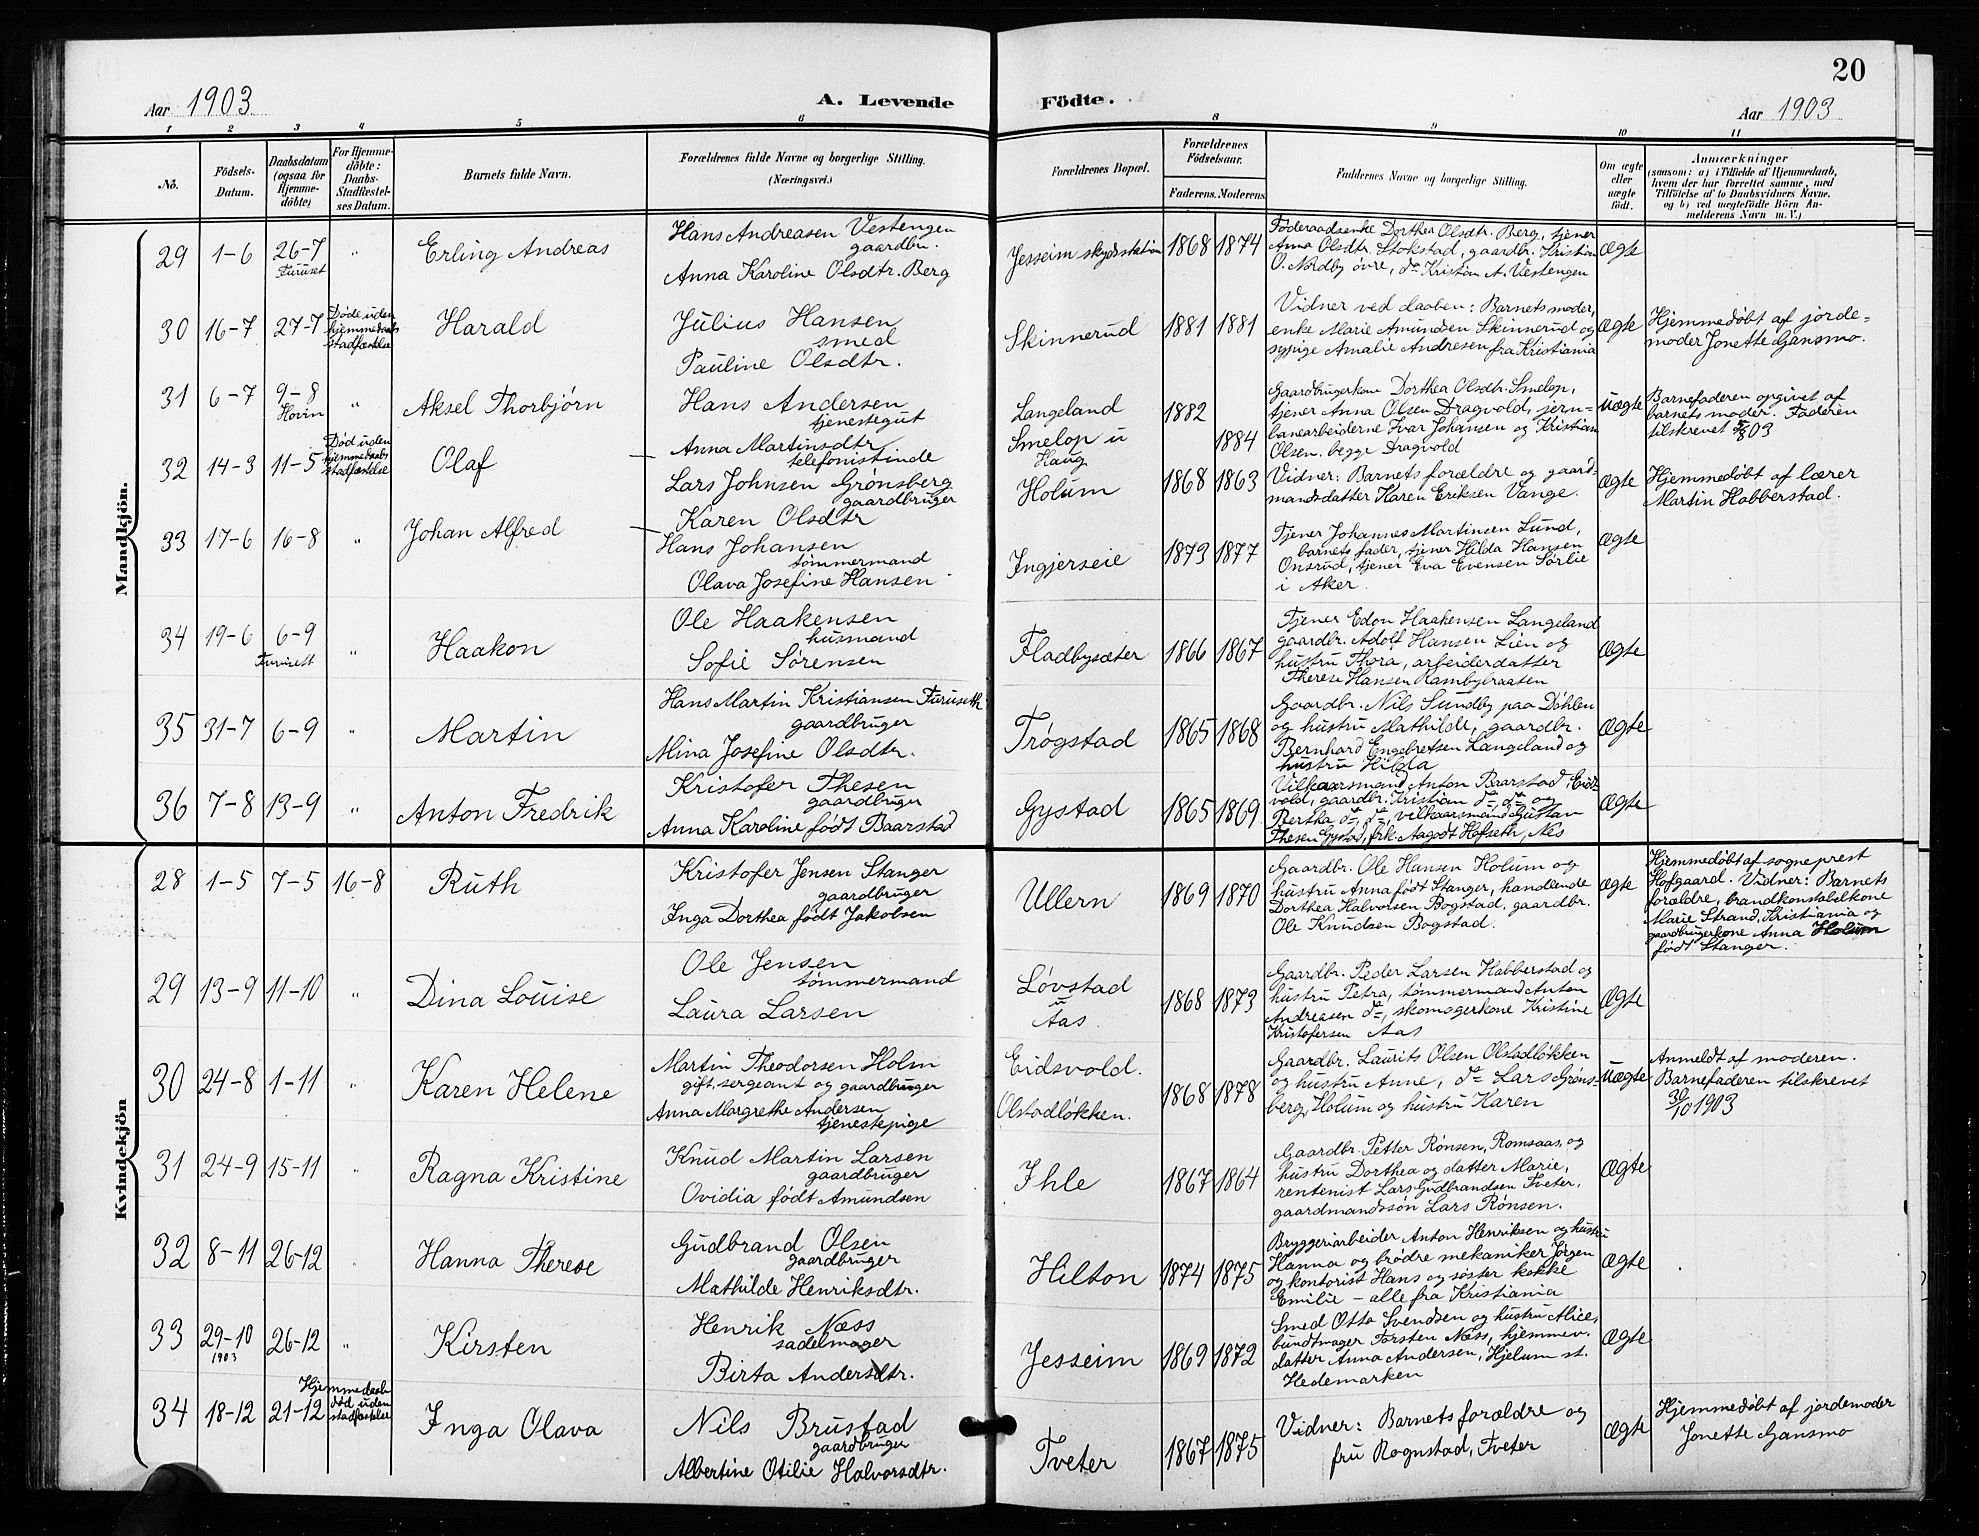 20
Aar 1903
A. Levende Födte.
Aar 1903
1 2 3 4 5 6 8 9 10 11
No.
Födsels-Datum.
Daabsdatum (ogsaa for Hjemme-döbte)
For Hjemme-döbte: Daabs-Stadfæstel-ses Datum.
Barnets fulde Navn.
Forældrenes fulde Navne og borgerlige Stilling.
(Næringsvei.)
Forældrenes Bopæl.
Forældrenes Födselsaar.
Faderens. Moderens.
Faddernes Navne og borgerlige Stilling.
Om ægte eller uægte födt.
Anmærkninger
(saasom: a) i Tilfælde af Hjemmedaab,
hvem der har forrettet samme, med
Tilföielse af to Daabsvidners Navne.
og b) ved uægtefödte Börn An-
melderens Navn m. V.)
Mandkjön.
29 1-6 26-7 Furuset " Erling Andreas
Hans Andreasen Vestengen
gaardbr.
Anna Karoline Olsdtr. Berg
Jesseim skydsstation 1868 1874
Föderaadsenke Dorthea Olsdtr. Berg, tjener
Anna Olsdtr. Stokstad, gaardbr. Kristian
O. Nordby övre, do Kristian A. Vestengen
Ægte
30 16-7 27-7 Döde uden hjemmedaabs stadfæstelse Harald
Julius Hansen
smed
Pauline Olsdtr.
Skinnerud 1881 1881
Vidner ved daaben: Barnets moder,
enke Marie Amundsen Skinnerud og
sypige Amalie Andresen fra Kristiania
Ægte
Hjemmedøbt af jorde-
moder Jonette Gansmo.
31 6-7 9-8 Hovin " Aksel Thorbjørn
Hans Andersen
tjenestegut
Anna Martinsdtr
telefonistinde
Langeland
Smelop u
Haug
1882
1884
Gaardbrugerkone Dorthea Olsdtr. Smelop,
tjener Anna Olsen Dragvold, jern-
banearbeiderne Ivar Johansen og Kristian
Olsen, begge Dragvold
Uægte
Barnefaderen opgivet af
barnets moder. Faderen
tilskrevet 03
32 14-3 11-5 Död uden hjemmedaabs stadfæstelse Olaf
Lars Johnsen Grønsberg
gaardbruger
Karen Olsdtr
Holum 1868 1863
Vidner: Barnets forældre og gaard-
mandsdatter Karen Eriksen Vange.
Ægte
Hjemmedøbt af lærer
Martin Habberstad.
33 17-6 16-8 " Johan Alfred
Hans Johansen
tømmermand
Olava Josefine Hansen
Ingjerseie 1873 1877
Tjener Johannes Martinsen Lund,
barnets fader, tjener Hilda Hansen
Onsrud, tjener Eva Evensen Sørlie
i Aker.
Ægte
34 19-6 6-9 Furusett " Haakon
Ole Haakensen
husmand
Sofie Sørensen
Fladbysæter 1866 1867
Tjener Edon Haakensen Langeland
gaardbr. Adolf Hansen Lien og
hustru Thora, arbeiderdatter
Therese Hansen Rambyeraasen
Ægte
35 31-7 6-9 " Martin
Hans Martin Kristiansen Furuseth
gaardbruger
Mina Josefine Olsdtr.
Trøgstad 1865 1868
Gaardbr. Nils Sundby paa Döhlen
og hustru Mathilde, gaardbr.
Bernhard Engebretsen Langeland og
hustru Hilda
Ægte
36 7-8 13-9 " Anton Fredrik
Kristofer Thesen
gaardbruger
Anna Karoline født Baarstad
Gystad 1865 1869
Vilkaarsmand Anton Baarstad, Eids-
vold, gaardbr. Kristian do, do og
Bertha do, do, vilkaarsmand Gustav
Thesen Gystad, frk. Aagodt Hofseth, Nes
Ægte
Kvindekjön
28 1-5 7-5 16-8 Ruth
Kristofer Jensen Stanger
gaardbruger
Inga Dorthea født Jakobsen
Ullern 1869 1870
Gaardbr. Ole Hansen Holum og
hustru Anna født Stanger, handlende
Dorthea Halvorsen Bogstad, gaardbr.
Ole Knudsen Bogstad.
Ægte
Hjemmedøbt af sogneprest
Hofgaard. Vidner: Barnets
forældre, brandkonstabelkone
Marie Strand, Kristiania og
gaardbrugerkone Anna Holum
født Stanger.
29 13-9 11-10 " Dina Louise
Ole Jensen
tømmermand
Laura Larsen
Løvstad
u
Aas
1868 1873
Gaardbr. Peder Larsen Habberstad og
hustru Petra, tømmermand Anton
Andreasen do, skomagerkone Kristine
Kristofersen Aas
Ægte
30 24-8 1-11 " Karen Helene
Martin Theodorsen Holm
gift, sergeant og gaardbruger
Anna Margrethe Andersen
tjenestepige
Eidsvold.
Olstadløkken.
1868 1878
Gaardbr. Laurits Olsen Olstadløkken
og hustru Anne, do Lars Grøns-
berg, Holum og hustru Karen
Uægte
Anmeldt af moderen.
Barnefaderen tilskrevet
30/10 1903
31 24-9 15-11 " Ragna Kristine
Knud Martin Larsen
gaardbruger
Ovidia født Amundsen
Ihle 1867 1864
Gaardbr. Petter Rønsen, Romsaas, og
hustru Dorthea og datter Marie,
rentenist Lars Gudbrandsen Tveter,
gaardmandssøn Lars Rønsen.
Ægte
32 8-11 26-12 " Hanna Therese
Gudbrand Olsen
gaardbruger
Mathilde Henriksdtr.
Hilton 1874 1875
Bryggeriarbeider Anton Henriksen og hustru
Hanna og brødre mekaniker Jørgen
og kontorist Hans og søster kokke
Emilie – alle fra Kristiania
Ægte
33 29-10 1903 26-12 " Kirsten
Henrik Næss
sadelmager
Birta Andersdtr.
Jesseim 1869 1872
Smed Otto Svendsen og hustru Alice,
bundtmager Torsten Næss, hjemmev.
datter Anna Andersen, Hjelum st.
Hedemarken
Ægte
34 18-12 21-12 Hjemmedaab död uden stadfæstelse Inga Olava
Nils Brustad
gaardbruger
Albertine Otilie Halvorsdtr.
Tveter 1867 1875
Vidner: Barnets forældre og
fru Rognstad, Tveter
Ægte
Hjemmedøbt af jordemoder
Jonette Gansmo